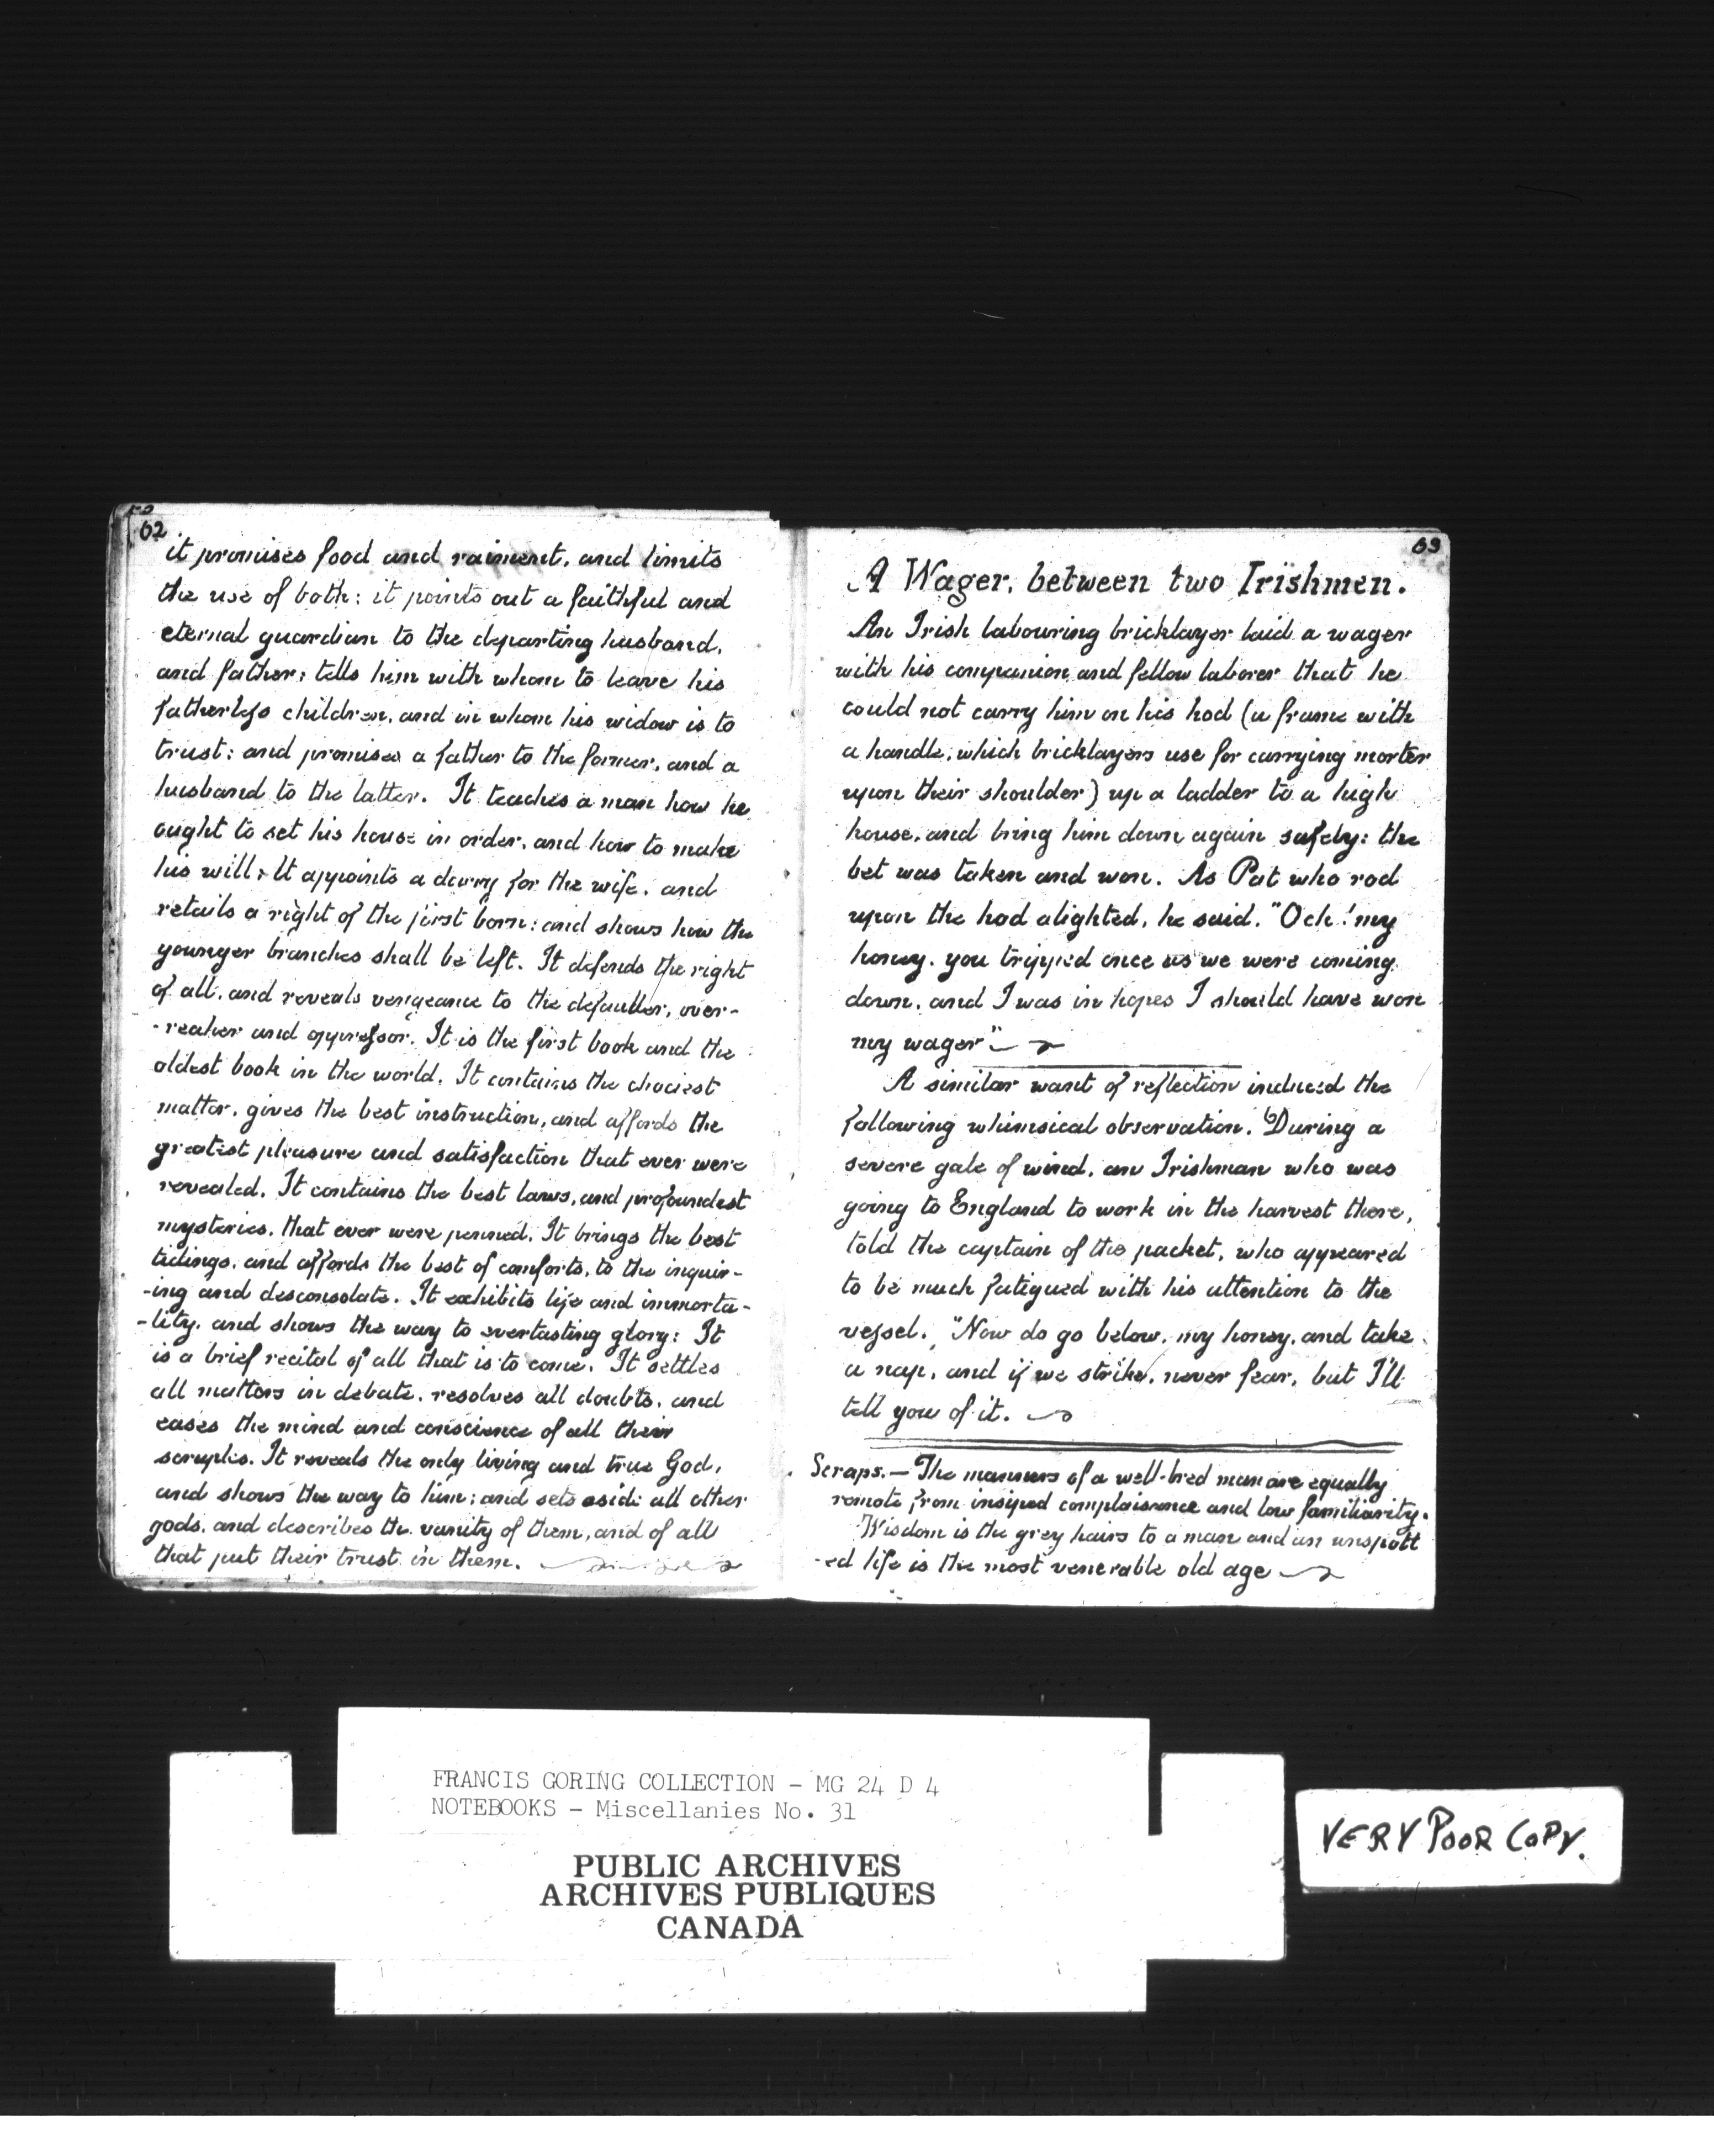 62
it promises food and raiment, and limits
the use of both: it points out a faithful and
eternal guardian to the departing husband,
and father; tells him with whom to leave his
fatherless children, and in whom his widow is to
trust: and promises a father to the former, and a
husband to the latter. It teaches a man how he
ought to set his house in order, and how to make
his will; It appoints a dowry for the wife, and
retails a right of the first born: and shows how the
younger branches shall be left. It defends the right
of all, and reveals vengeance to the defaulter, over-
-reaher and oppressor. It is the first book and the
oldest book in the world. It contains the chociest
matter, gives the best instruction, and affords the
greatest pleasure and satisfaction that ever were
revealed. It contains the best laws, and profoundest
mysteries, that ever were penned. It brings the best
tidings, and affords the best of comforts, to the inquir-
-ing and desconsolate. It exhibits life and immorta-
-lity, and shows the way to everlasting glory: It
is a brief recital of all that is to come. It settles
all matters in debate, resolves all doubts, and
eases the mind and conscience of all their
scruples. It reveals the only living and true God,
and shows the way to him; and sets aside all other
gods, and describes the vanity of them, and of all
that put their trust in them.
63
A Wager, between two Irishmen.
An Irish labouring bricklayer laid a wager
with his companion and fellow laborer that he
could not carry him on his hod (a frame with
a handle, which bricklayers use for carrying morter
upon their shoulder) up a ladder to a high
house, and bring him down again safely: the
bet was taken and won. As Pat who rod
upon the hod alighted, he said. "Och! my
honey, you tripped once as we were coming
down, and I was in hopes I should have won
my wager"
A similar want of reflection induced the
following whimsical observation. During a
severe gale of wind, an Irishman who was
going to England to work in the harvest there,
told the captain of the packet, who appeared
to be much fatigued with his attention to the
vessel. "Now do go below, my honey, and take
a nap, and if we strike, never fear, but I'll
tell you of it.
Scraps.— The manners of a well-bred man are equally
remote from insiped complaisance and low familiarity.
Wisdom is the grey hairs to a man and an unspott
-ed life is the most venerable old age
FRANCIS GORING COLLECTION - MG 24 D 4
NOTEBOOKS - Miscellanies No. 31
PUBLIC ARCHIVES
ARCHIVES PUBLIQUES
CANADA
VERY POOR COPY.